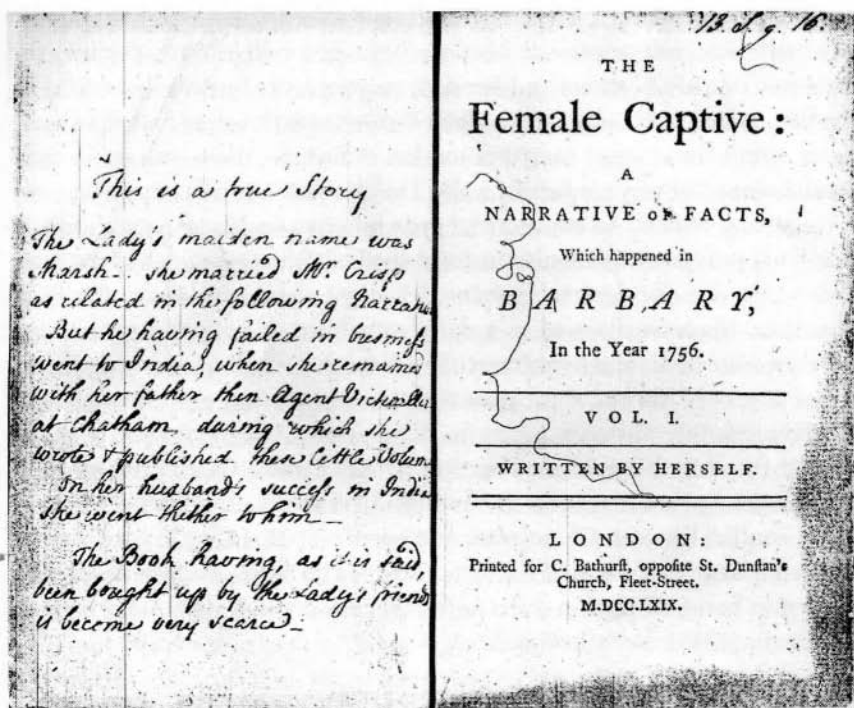 This is a true Story
The Lady's maiden name was
Marsh. she married Mr. Crisp
as related in the following Narrative
But he having failed in business
went to India, when she remained
with her father then Agent Victualler
at Chatham, during which she
wrote & published these little Volumes
In her husband's success in India
she went thither to him —
The Book having, as it is said
been bought up by the Lady's friends
is become very scarce —
13. g. 16.
THE
Female Captive:
A
NARRATIVE OF FACTS,
Which happened in
BARBARY,
In the Year 1756.
VOL. I.
WRITTEN BY HERSELF.
LONDON:
Printed for C. Bathurst, opposite St. Dunstan's
Church, Fleet-Street.
M.DCC.LXIX.